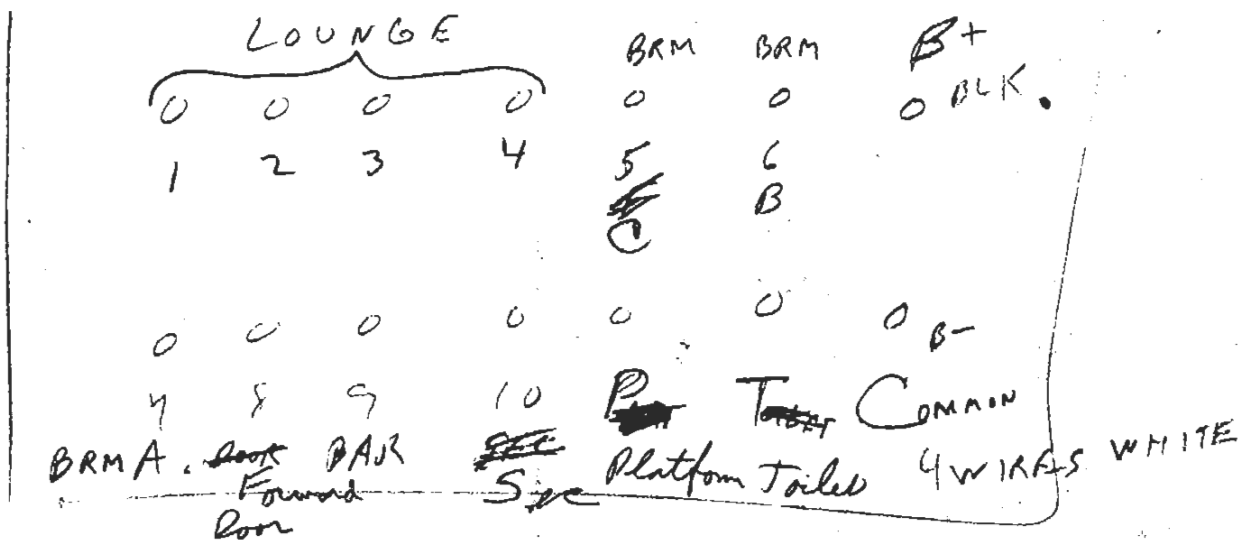 LOUNGE BRM BRM B+
O O O O O O O BLK.
1 2 3 4 5 6
B
C
O O O O O O O B-
7 8 9 10 P T COMMON
BRM A. BAR Platform Toilet 4 WIRES WHITE
Forward
Door